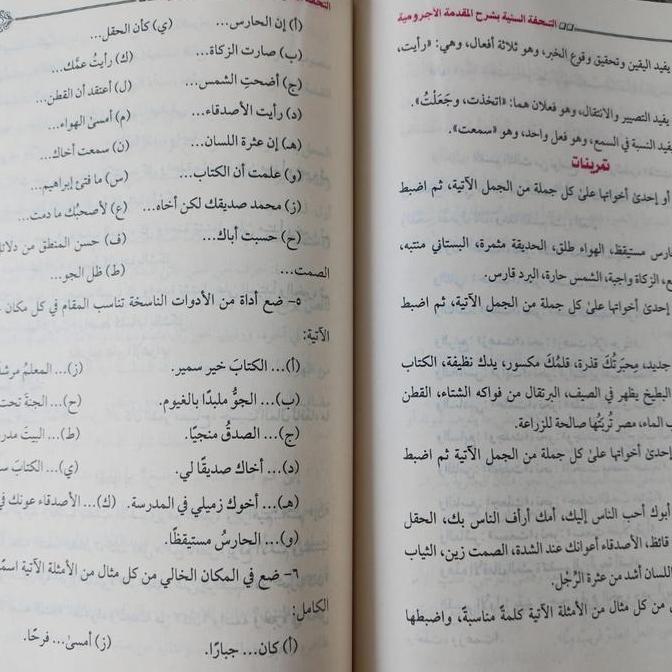 التحفة السنية بشرح المقدمة الآجرومية
يفيد اليقين وتحقيق وقوع الخبر، وهو ثلاثة أفعال، وهي: «رأيت،
يفيد التصيير والانتقال، وهو فعلان هما: «اتخذت، وجَعَلْتُ».
يفيد النسبة في السمع، وهو فعل واحد، وهو «سمعت».
تمرينات
أو إحدى أخواتها على كل جملة من الجمل الآتية، ثم اضبط
مستيقظ، الهواء طلق، الحديقة مثمرة، البستاني منتبه،
الزكاة واجبة، الشمس حارة، البرد قارس.
إحدى أخواتها على كل جملة من الجمل الآتية، ثم اضبط
جديد، مِحبَرتُكَ قذرة، قلمُكَ مكسور، يدك نظيفة، الكتاب
البطيخ يظهر في الصيف، البرتقال من فواكه الشتاء، القطن
الماء، مصر تُربَتُها صالحة للزراعة.
إحدى أخواتها على كل جملة من الجمل الآتية ثم اضبط
أبوك أحب الناس إليك، أمك أرأف الناس بك، الحقل
قائظ، الأصدقاء أعوانك عند الشدة، الصمت زين، الثياب
اللسان أشد من عثرة الرِّجْل.
من كل مثال من الأمثلة الآتية كلمةً مناسبةً، واضبطها
(أ) إن الحارس... (ي) كأن الحقل...
(ب) صارت الزكاة... (ك) رأيتُ عمَّك...
(ج) أضحتِ الشمس... (ل) أعتقد أن القطن...
(د) رأيت الأصدقاء... (م) أمسى الهواء...
(هـ) إن عثرة اللسان... (ن) سمعت أخاك...
(و) علمت أن الكتاب... (س) ما فتئ إبراهيم...
(ز) محمد صديقك لكن أخاه... (ع) لأصحبُك ما دمت...
(ح) حسبت أباك... (ف) حسن المنطق من دلائل
الصمت... (ط) ظل الجو...
٥- ضع أداة من الأدوات الناسخة تناسب المقام في كل مكان
الآتية:
(أ)... الكتابَ خير سمير. (ز)... المعلمُ
(ب)... الجوُّ ملبدًا بالغيوم. (ح)... الجنةَ تحت
(ج)... الصدقُ منجيًا. (ط)... البيتَ
(د)... أخاك صديقًا لي. (ي)... الكتابَ
(هـ)... أخوك زميلي في المدرسة. (ك)... الأصدقاء عونك في
(و)... الحارسُ مستيقظًا.
٦- ضع في المكان الخالي من كل مثال من الأمثلة الآتية
الكامل:
(أ) كان... جبارًا. (ز) أمسى... فرحًا.